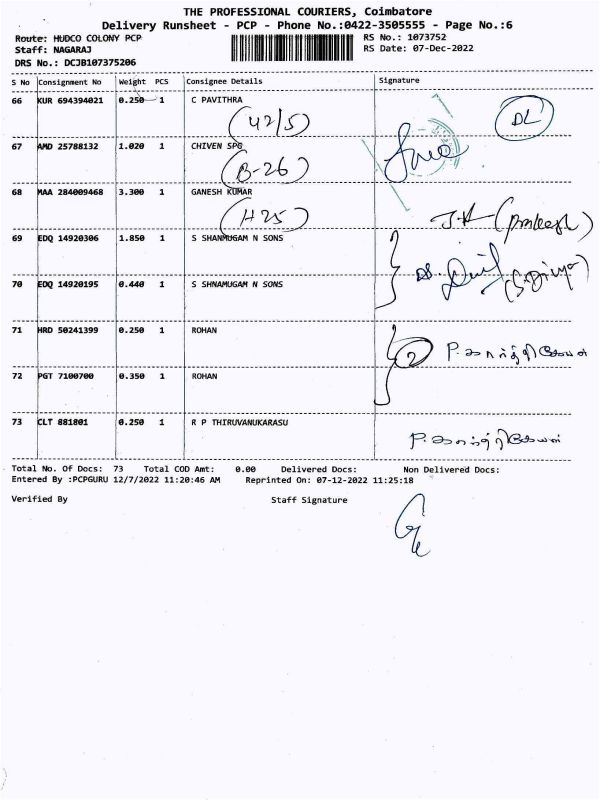 THE PROFESSIONAL COURIERS, Coimbatore
Delivery Runsheet - PCP - Phone No.:0422-3505555 - Page No.:6
Route: HUDCO COLONY PCP RS No.: 1073752
Staff: NAGARAJ RS Date: 07-Dec-2022
DRS No.: DCJB107375206
S No Consignment No Weight PCS Consignee Details Signature
66 KUR 694394021 0.250 1 C PAVITHRA
(42/5) DL
67 AMD 25788132 1.020 1 CHIVEN SPG
(B-26)
68 MAA 284009468 3.300 1 GANESH KUMAR
(H25)
69 EDQ 14920306 1.850 1 S SHANMUGAM N SONS
70 EDQ 14920195 0.440 1 S SHNAMUGAM N SONS
(S.Divya)
71 HRD 50241399 0.250 1 ROHAN
2 P. கார்த்திகேயன்
72 PGT 7100700 0.350 1 ROHAN
73 CLT 881801 0.250 1 R P THIRUVANUKARASU
P. கார்த்திகேயன்
Total No. Of Docs: 73 Total COD Amt: 0.00 Delivered Docs: Non Delivered Docs:
Entered By :PCPGURU 12/7/2022 11:20:46 AM Reprinted On: 07-12-2022 11:25:18
Verified By Staff Signature